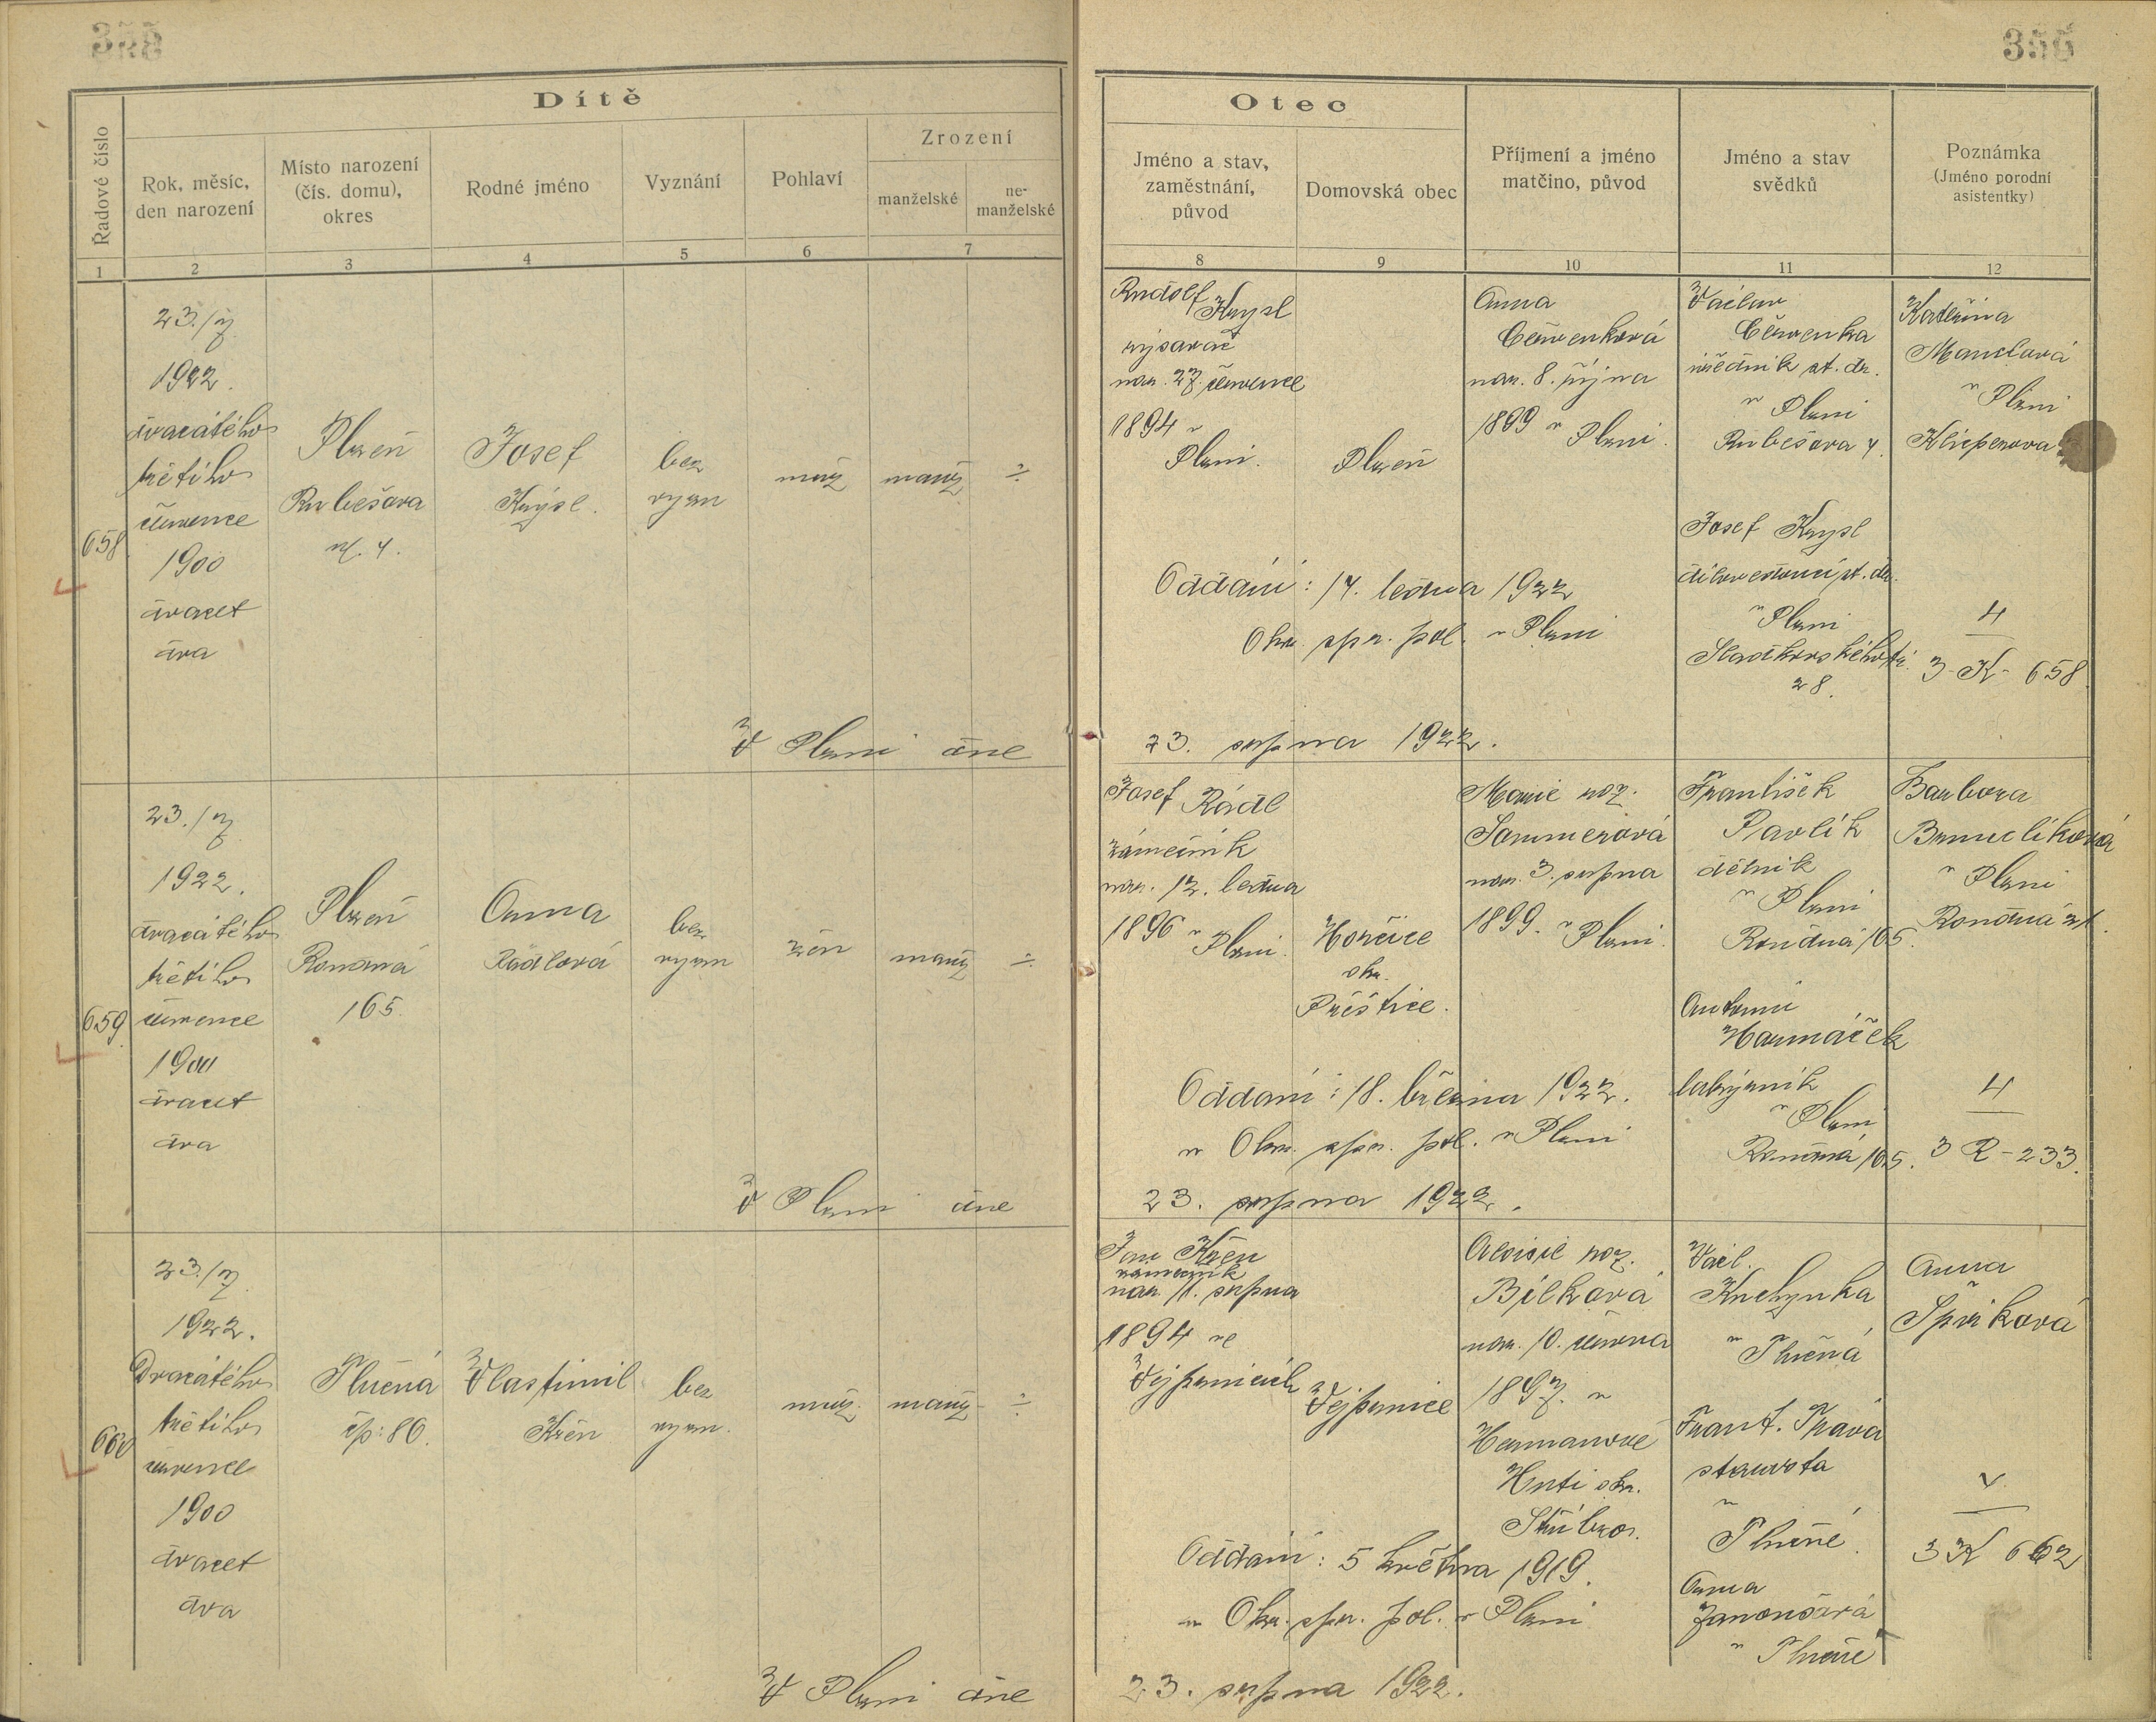 355
355
Dítě
Otec
Řadové číslo
Rok, měsíc,
den narození
Místo narození
(čís. domu),
okres
Rodné jméno
Vyznání
Pohlaví
Zrození
manželské
ne-
manželské
Jméno a stav,
zaměstnání,
původ
Domovská obec
Příjmení a jméno
matčino, původ
Jméno a stav
svědků
Poznámka
(Jméno porodní
asistentky)
1
2
3
4
5
6
7
8
9
10
11
12
658
23./7.
1922.
dvacátého
třetího
července
1900
dvacet
dva
Plzeň
Rubešova
ul. 4.
Josef
Knýsl.
bez
vyzn
muž
manž
÷
Rudolf Knysl
rýsovač
nar. 27. července
1894 v
Plzni.
Plzeň
Anna
Červenková
nar. 8. října
1899 v Plzni.
Václav
Červenka
úředník st. dr.
v Plzni
Rubešova 4.
Josef Knysl
st. dr.
v Plzni
Sladkovského tř.
28.
Kateřina
v Plzni
Klicperova
4
3-K-658.
Oddáni: 14. ledna 1922
Okr. spr. pol. v Plzni
V Plzni dne
23. srpna 1922.
659
23./7.
1922.
dvacátého
třetího
července
1900
dvacet
dva
Plzeň
Rondná
165.
Anna
Rádlová
bez
vyzn
žen
manž
÷
Josef Rádl
zámečník
nar. 12. ledna
1896 v Plzni.
Horčice
okr.
Přeštice.
Marie roz.
Sommerová
nar. 3. srpna
1899. v Plzni.
František
Pavlík
dělník
v Plzni
Rondná 165.
Antonín
Harmáček
v Plzni
Rondná 165.
Barbora
v Plzni
Rondná 21.
4
3 R-233.
Oddáni: 18. března 1922.
v Okr. spr. pol. v Plzni
V Plzni dne
23. srpna 1922.
660
23./7.
1922.
Dvacátého
třetího
července
1900
dvacet
dva
Tlučná
čp: 86.
Vlastimil
Křen
bez
vyzn.
muž.
manž
÷
Jan Křen
zámečník
nar. 11. srpna
1894 ve
Vejprnicích
Vejprnice
Aloisie roz.
Bílková
nar. 10. června
1897. v
Heřmanově
Huti okr.
Stříbro.
Václ.
Kuchynka
v Tlučná
Frant. Tráva
starosta
v
Tlučné.
Anna
v Tlučné
Anna
Špirková
3 K 662
Oddáni: 5 května 1919.
v Okr. spr. pol. v Plzni
V Plzni dne
23. srpna 1922.